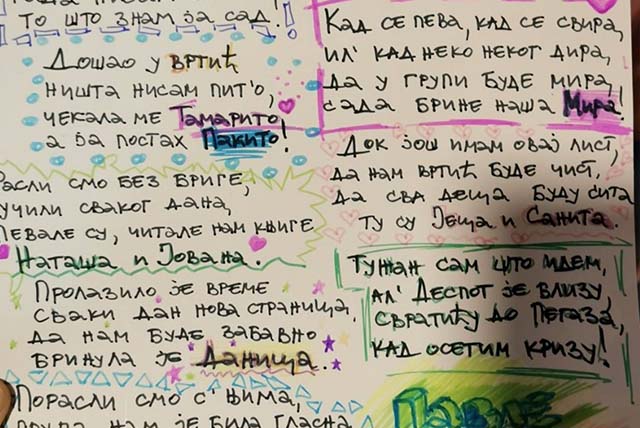 ТО ШТО ЗНАМ ЈА САД!
ДОШАО У ВРТИЋ
НИШТА НИСАМ ПИТ'О,
ЧЕКАЛА МЕ ТАМАРИТО,
А ЈА ПОСТАХ ПАКИТО!
РАСЛИ СМО БЕЗ БРИГЕ,
УЧИЛИ СВАКОГ ДАНА,
ПЕВАЛЕ СУ, ЧИТАЛЕ НАМ КЊИГЕ
НАТАША И ЈОВАНА.
ПРОЛАЗИЛО ЈЕ ВРЕМЕ
СВАКИ ДАН НОВА СТРАНИЦА,
ДА НАМ БУДЕ ЗАБАВНО
БРИНУЛА ЈЕ ДАНИЦА.
ПОРАСЛИ СМО С' ЊИМА,
НАМ ЈЕ БИЛА ГЛАСНА
КАД СЕ ПЕВА, КАД СЕ СВИРА,
ИЛ' КАД НЕКО НЕКОГ ДИРА,
ДА У ГРУПИ БУДЕ МИРА,
САДА БРИНЕ НАША МИРА!
ДОК ЈОШ ИМАМ ОВАЈ ЛИСТ,
ДА НАМ ВРТИЋ БУДЕ ЧИСТ,
ДА СВА ДЕЦА БУДУ СИТА
ТУ СУ ЈЕЦА И САНИТА.
ТУЖАН САМ ШТО ИДЕМ,
АЛ' ДЕСПОТ ЈЕ БЛИЗУ,
СВРАТИЋУ ДО ПЕГАЗА,
КАД ОСЕТИМ КРИЗУ!
ПАВЛЕ